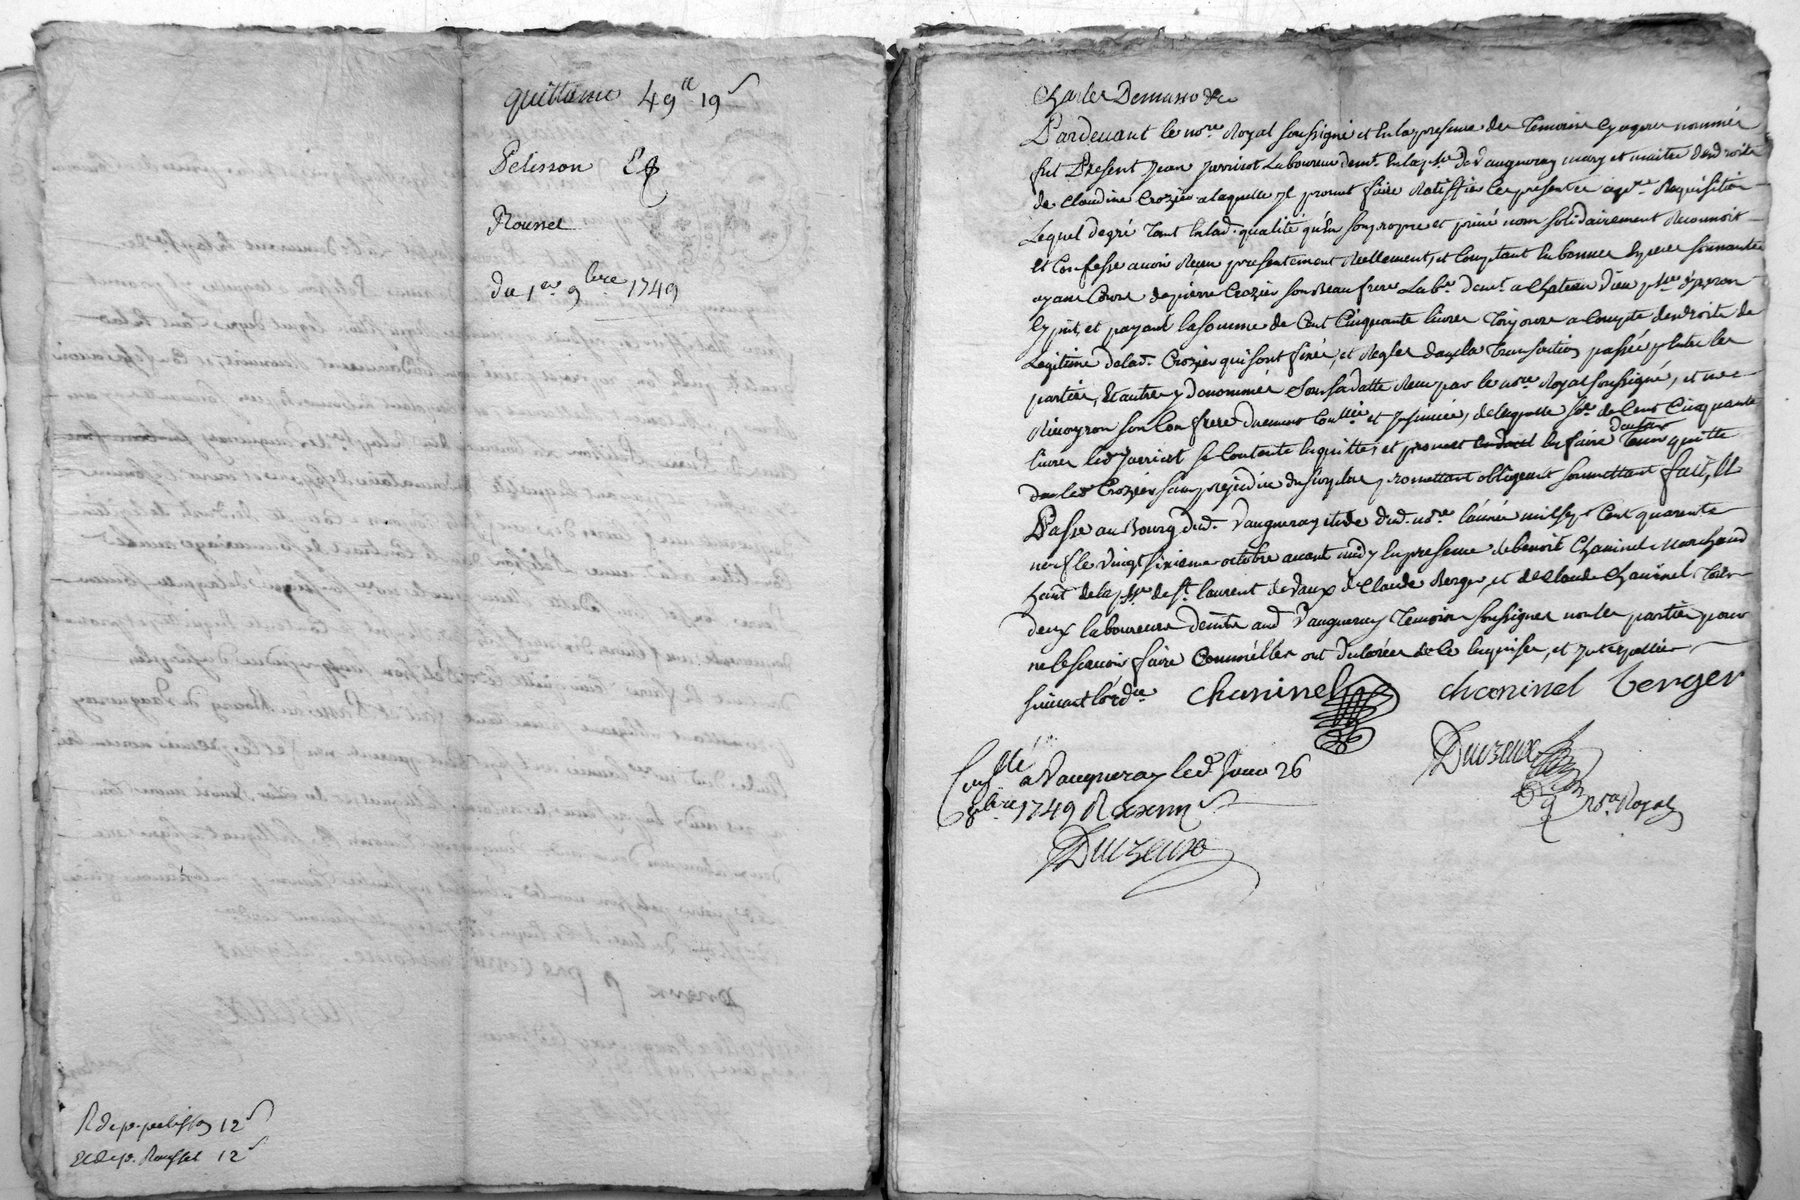 quittance 49ll 19s
Pelisson Et
Roussel
du 1er 9bre 1749
R de p. pelisson 12s
Et de p. Roussel 12s
Pardevant le nore Royal soussigné et en la presence des Temoins cy apres nommés
fut Present Jean Jarricot Laboureur demt. en la psse de Vaugneray mary et maitre des droits
de Claudine Crozier a laquelle Jl promet faire Ratiffier ces presentes a pre Requisition
Lequel de gré Tant en lad. qualité qu'en son propre et privé nom solidairement Reconnoit
et Confesse avoir Receu presentement Reellement, et Comptant en bonnes especes sonnantes
ayant Cours de pierre Crozier son Beau frere Labr. demt. a Chateau Vieu psse d'yzeron
Cy pnt, et payant la somme de Cent Cinquante livres Tournois a Compte des droits de
Legitime de lad. Crozier qui sont fixés, et Reglés dans la Transaction passée Entre les
parties, Et autres y denommés sous sa datte Receu par le nore Royal soussigné, et me
son Confrere duement Conllée et Jnsinuée, de laquelle se. de Cent Cinquante
livres led. Jarricot se Contente en quitte, et promet en faire Tenir quitte
led. Crozier sans prejudice du surplus promettant obligeant soumettant fait, Et
Passé au Bourg dud. Vaugneray etude dud. nore. l'année mil sept Cent quarante
neuf le vingt sixieme octobre avant midy En presence de benoit Chaninel Marchand
hant de la psse de st. laurent de Vaux de Claude Berger, et de Claude Chaninel Tous
deux laboureurs demts aud. Vaugneray Temoins soussignés non les parties pour
ne le sçavoir faire Comm'elles ont declarées de ce Enquises, et Jnterpellées
suivant l'ordce Chaninel chaninel berger
Duczeux
nre Royal
Conllé a Vaugneray led. Jour 26
8bre 1749 R
Duczeux